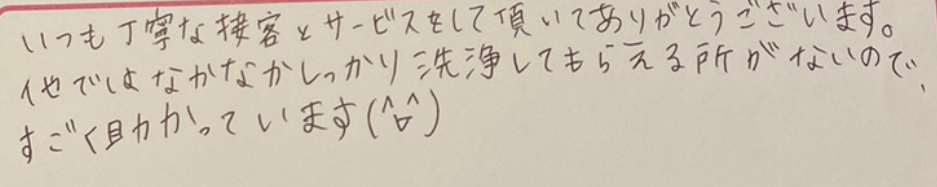 いつも丁寧な接客とサービスをして頂いてありがとうございます。
他ではなかなかしっかり洗浄してもらえる所がないので、
すごく助かっています(^▽^)